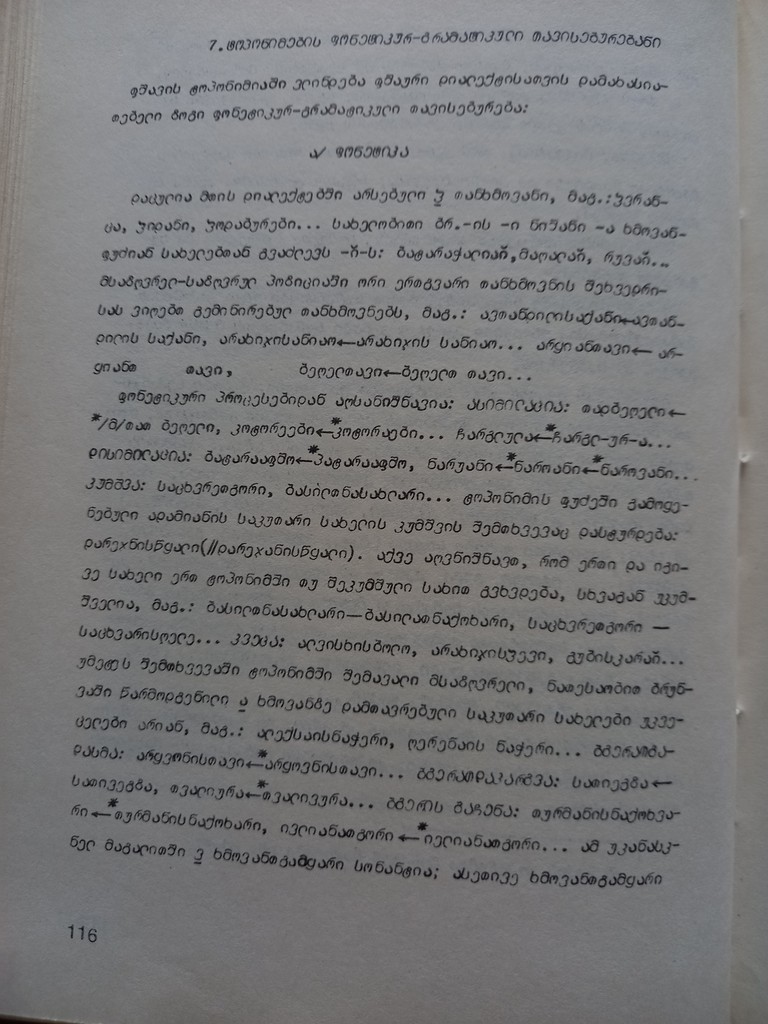 7. ტოპონიმების ფონეტიკურ-გრამატიკული თავისებურებანი
ფშავის ტოპონიმიაში ვლინდება ფშაური დიალექტისათვის დამახასია-
თებელი ზოგი ფონეტიკურ-გრამატიკული თავისებურება:
ა/ ფონეტიკა
დაცულია მთის დიალექტებში არსებული ჴ თანხმოვანი, მაგ.:ჴერან-
ცა, ჴიდანი, ჴოდაბურები... სახელობითი ბრ.-ის -ი ნიშანი -ა ხმოვან-
ფუძიან სახელებთან გვაძლევს -ჲ-ს: ბატარაქალიაჲ,მაღალაჲ, რევაჲ...
მსაზღვრელ-საზღვრულ პოზიციაში ორი ერთგვარი თანხმოვნის შეხვედრი-
სას ვიღებთ გემინირებულ თანხმოვნებს, მაგ.: ავთანდილისაქანი←ავთან-
დილის საქანი, არახიჯისანიაო←არახიჯის სანიაო... არყიანთავი← არ-
ყიანთ თავი, ბეღელთავი←ბეღელთ თავი...
ფონეტიკური პროცესებიდან აღსანიშნავია: ასიმილაცია: თადბეღელი←
*/მ/თათ ბეღელი, კოტორეები←*კოტორაები... ჩარგლულა←*ჩარგლ-ურ-ა...
დისიმილაცია: ბატარააფშო←*პატარააფშო, ნარუანი←*ნაროანი←*ნაროვანი...
კუმშვა: საცხვრეთგორი, ბასილთნასახლარი... ტოპონიმის ფუძეში გამოყე-
ნებული ადამიანის საკუთარი სახელის კუმშვის შემთხვევაც დასტურდება:
დარეჯნისწყალი(//დარეჯანისწყალი). აქვე აღვნიშნავთ, რომ ერთი და იგი-
ვე სახელი ერთ ტოპონიმში თუ შეკუმშული სახით გვხვდება, სხვაგან უკუმ-
შველია, მაგ.: ბასილთნასახლარი—ბასილათნაქოხარი, საცხვრეთგორი —
საცხვარისღელე... კვეცა: ალვისხისბოლო, არახიჯისუევი, გუბისკარაჲ...
უმეტეს შემთხვევაში ტოპონიმში შემავალი მსაზღვრელი, ნათესაობით ბრუნ-
ვაში წარმოდგენილი ა ხმოვანზე დამთავრებული საკუთარი სახელები უკვე-
ცელები არიან, მაგ.: ალექსაისნაჭერი, ღერენაის ნაჭერი... ბგერათგა-
დასმა: არყვონისთავი←*არყოვნისთავი... ბგერათდაკარგვა: სათიეგზა←
სათივეგზა, თვალიურა←*თვალივურა... ბგერის გაჩენა: თურმანისნაქოხვა-
რი←*თურმანისნაქოხარი, ივლიანათგორი←*იულიანათგორი... ამ უკანასკ-
ნელ მაგალითში ვ ხმოვანთგამყარი სონანტია; ასეთივე ხმოვანთგამყარი
116